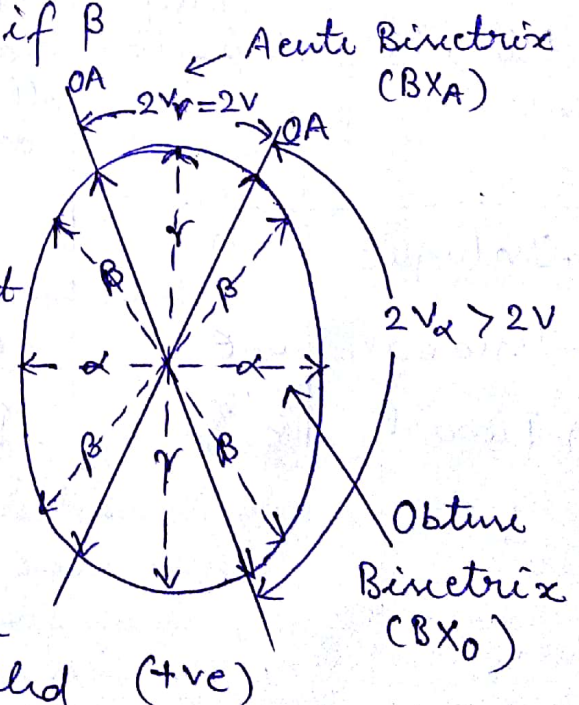 if β
Acute Bisectrix
(BXA)
OA
2Vγ=2V
OA
γ
β
β
t
2Vα > 2V
α
α
β
γ
β
Obtuse
Bisectrix
(BXO)
(+ve)